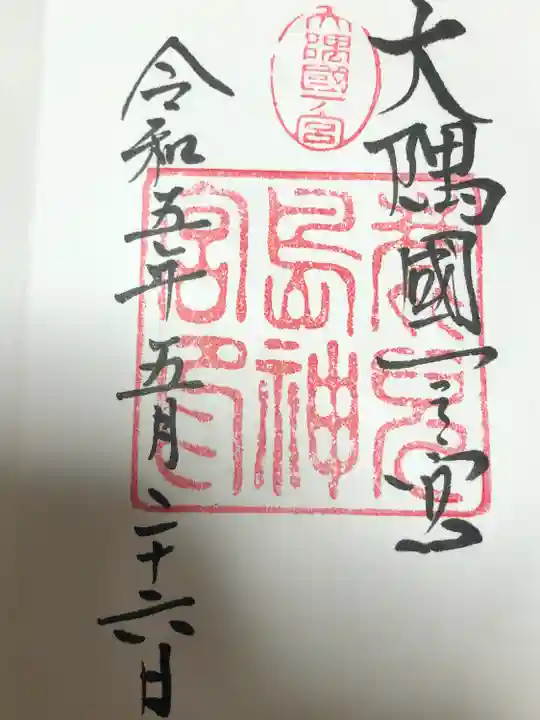 大隅國一之宮
大隅國一ノ宮
鹿兒
島神
宮印
令和五年五月二十六日